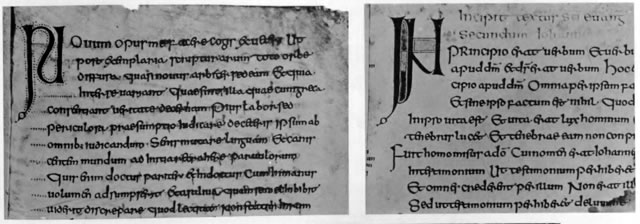 Nouum opus me facere cogis ex ueteri Ut
post exemplaria scripturarum toto orbe
quasi arbiter sedeam Et quia
inter se uariant Quae sint illa quae cum greca
consentiant ueritate decernam Pius labor sed
periculosa praesumptio iudicare de ceteris ipsum ab
omnibus iudicandum Senis mutare linguam Et canes
centem mundum ad initia retrahere paruulorum
Quis enim doctus pariter indoctus Cum in manus
uolumen adsumpserit Et a saliua quam semel inbibit
uiderit discrepare quod lectitat Non statim
Incipit textus euang
Secundum Iohannem
IN Principio erat uerbum Et uerb
apud dm̄ Et ds̄ erat uerbum Hoc
cipio apud dm̄ Omnia per ipsum fa
Et sine ipso factum est nihil Quod
In ipso uita est Et uita erat lux hominum
tenebris lucet Et tenebrae eam non conpre
Fuit homo missus a dō Cui nomen erat iohann
In testimonium Ut testimonium perhiber
Et omnes crederent per illum Non erat ill
Sed ut testimonium perhiberet de lumine